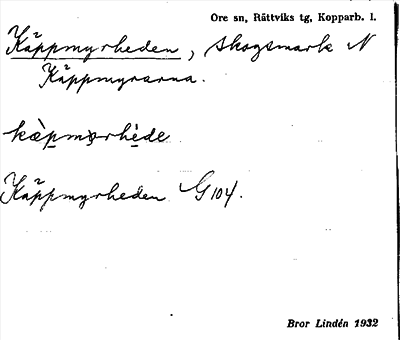 Ore sn, Rättviks tg, Kopparb. l.
Käppmyrheden, skogsmark N
Käppmyrarna.
kæ̀pmyrhède
Käppmyrheden G 104.
Bror Lindén 1932